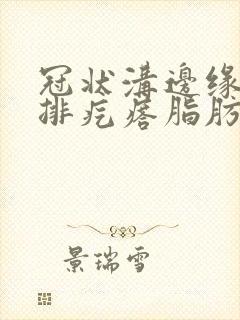 冠状溝邊缘
排疙瘩脂肪
景瑞雪